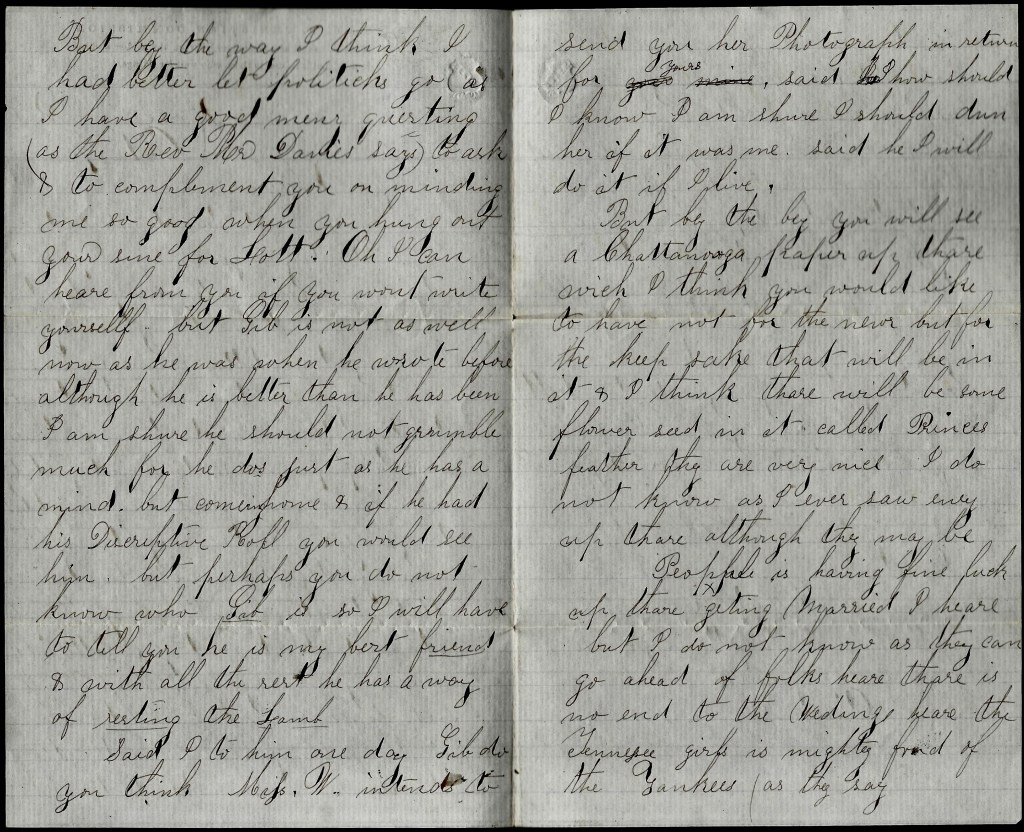 But by the way I think I
had better let politicks go as
I have a good meny questings
(as the Rev Mr Davies says) to ask
& to complement you on minding
me so good when you hung out
your sine for Holt. Oh I can
heare from you if you wont write
yourself. but Gib is not as well
now as he was when he wrote before
although he is better than he has been
I am shure he should not grumble
much for he dos just as he has a
mind. but comeing home & if he had
his Discriptive Roll you would see
him. but perhaps you do not
know who Gib is so I will have
to till you he is my best friend
& with all the rest he has a way
of resting the Lamb
Said I to him one day Gib do
you think Miss. W. intends to
send you her Photograph in return
for yours mine, said I how should
I know I am shure I should dun
her if it was me. said he I will
do it if I live.
But by the by you will see
a Chattanooga paper up thare
wich I think you would like
to have not for the news but for
the keep sake that will be in
it & I think thare will be some
flower seed in it called Princes
feather they are very nice I do
not know as I ever saw eny
up thare although they may be
People is having fine luck
up thare geting Married I heare
but I do not know as they can
go ahead of folks heare thare is
no end to the Wedings heare the
Tennesee girls is mighty fond of
the Yankees (as they say